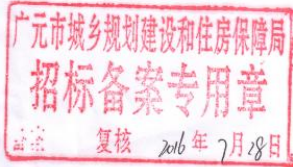 广元市城乡规划建设和住房保障局
招标备案专用章
复核 2016年7月28日